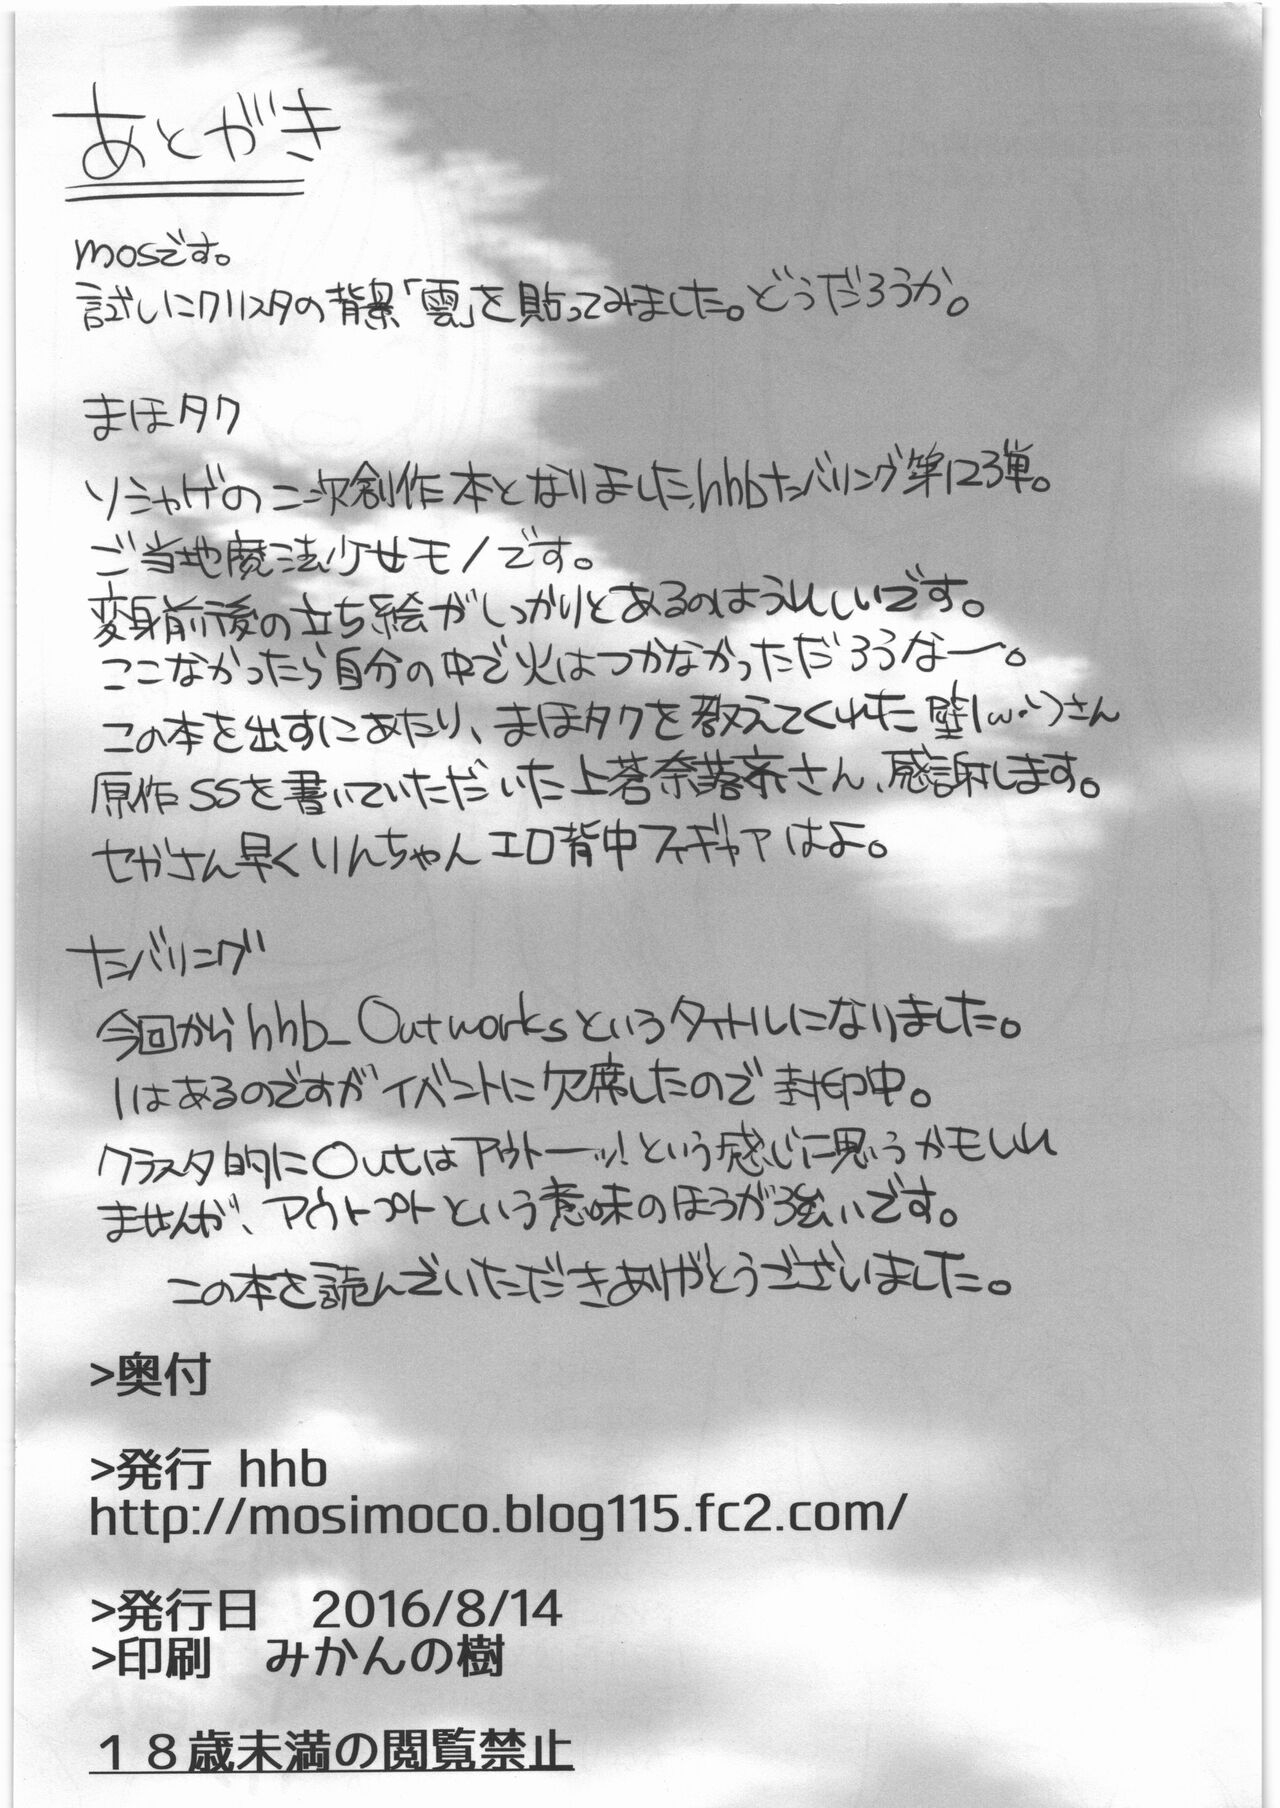 あとがき
mosです。
試しにクリスタの背景「雲」を貼ってみました。どうだろうか。
まほタク
ソシャゲの二次創作本となりました、hhbナンバリング第123弾。
ご当地魔法少女モノです。
変身前後の立ち絵がしっかりとあるのはうれしいです。
ここなかったら自分の中で火はつかなかっただろうなー。
この本を出すにあたり、まほタクを教えてくれた壁|ω・)さん
原作SSを書いていただいた上苔奈落さん、感謝します。
セガさん早くりんちゃんエロ背中フィギャアはよ。
ナンバリング
今回からhhb_Outworksというタイトルになりました。
1はあるのですがイベントに欠席したので封印中。
クラスタ的にOutはアウトーッ!という感じに思うかモしれ
ませんが、アウトプトという意味のほうが強いです。
この本を読んでいただきありがとうございました。
>奥付
>発行 hhb
http://mosimoco.blog115.fc2.com/
>発行日 2016/8/14
>印刷 みかんの樹
１８歳未満の閲覧禁止